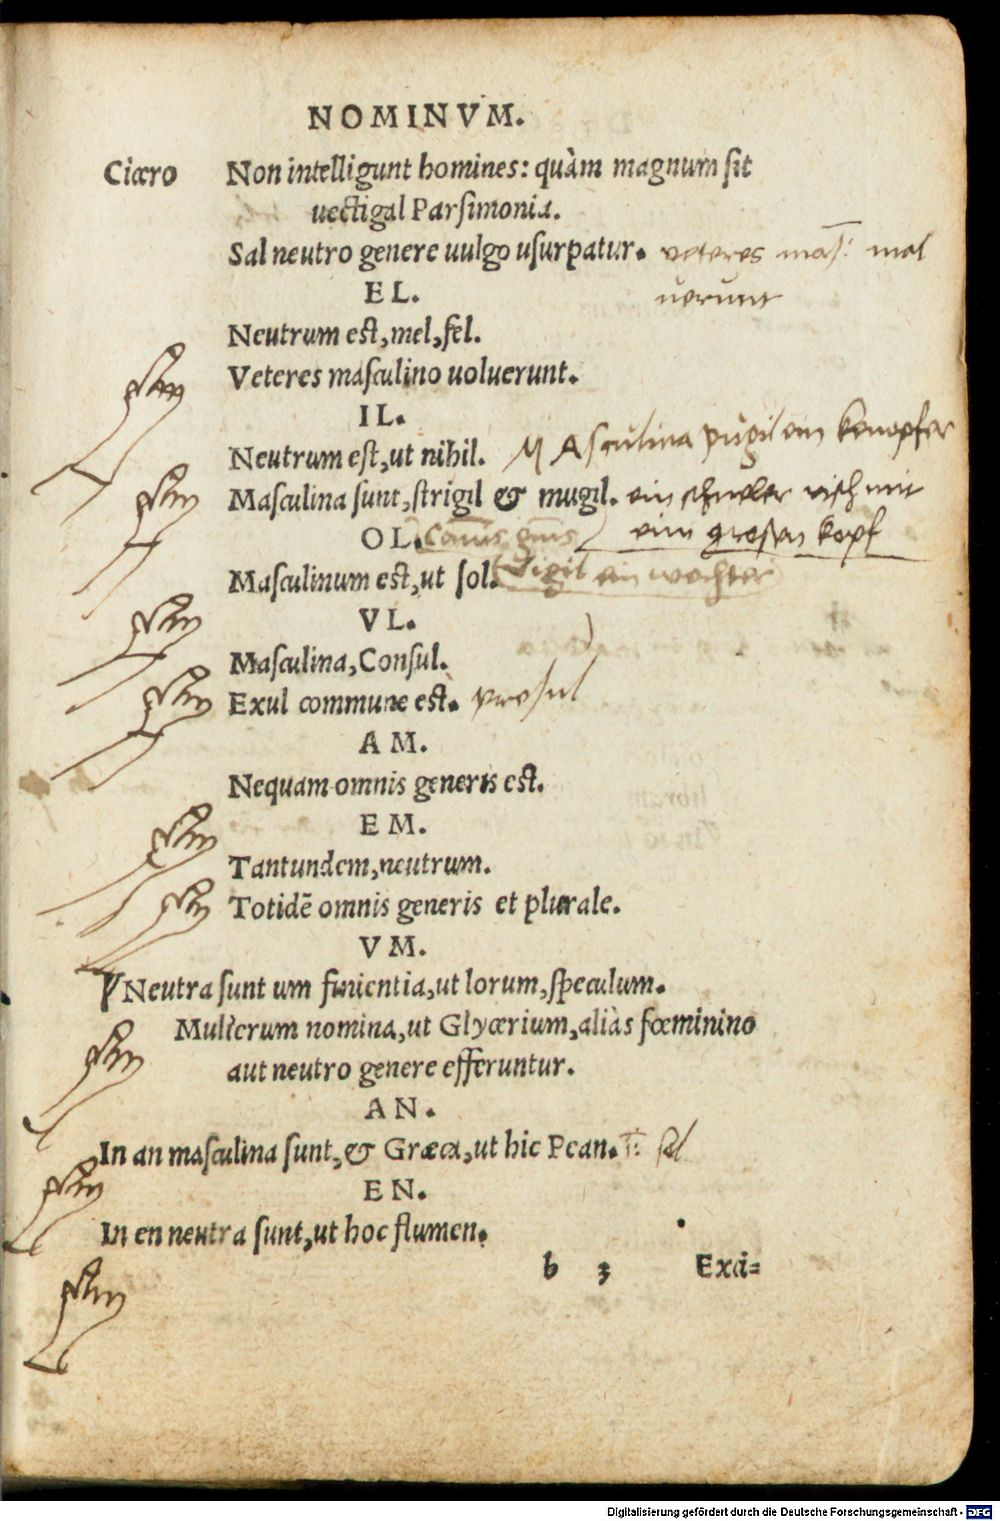 NOMINVM.
Cicero Non intelligunt homines: quàm magnum sit
uectigal Parsimonia.
Sal neutro genere uulgo usurpatur. veteres mas: mal
uerunt
EL.
Neutrum est, mel, fel.
Veteres masculino uoluerunt.
IL.
Neutrum est, ut nihil. MAsculina pugil ein kenopfer
Masculina sunt, strigil & mugil. ein schneler visch mit
OL. eim grosen kopf
Masculinum est, ut sol. Vigil ein wechter
VL.
Masculina, Consul.
Exul commune est. presul
AM.
Nequam omnis generis est.
EM.
Tantundem, neutrum.
Totidē omnis generis et plurale.
VM.
Neutra sunt um finientia, ut lorum, speculum.
Mulierum nomina, ut Glycerium, aliàs fœminino
aut neutro genere efferuntur.
AN.
In an masculina sunt, & Græca, ut hic Pean.
EN.
In en neutra sunt, ut hoc flumen.
b 3 Exci=
Digitalisierung gefördert durch die Deutsche Forschungsgemeinschaft - DFG